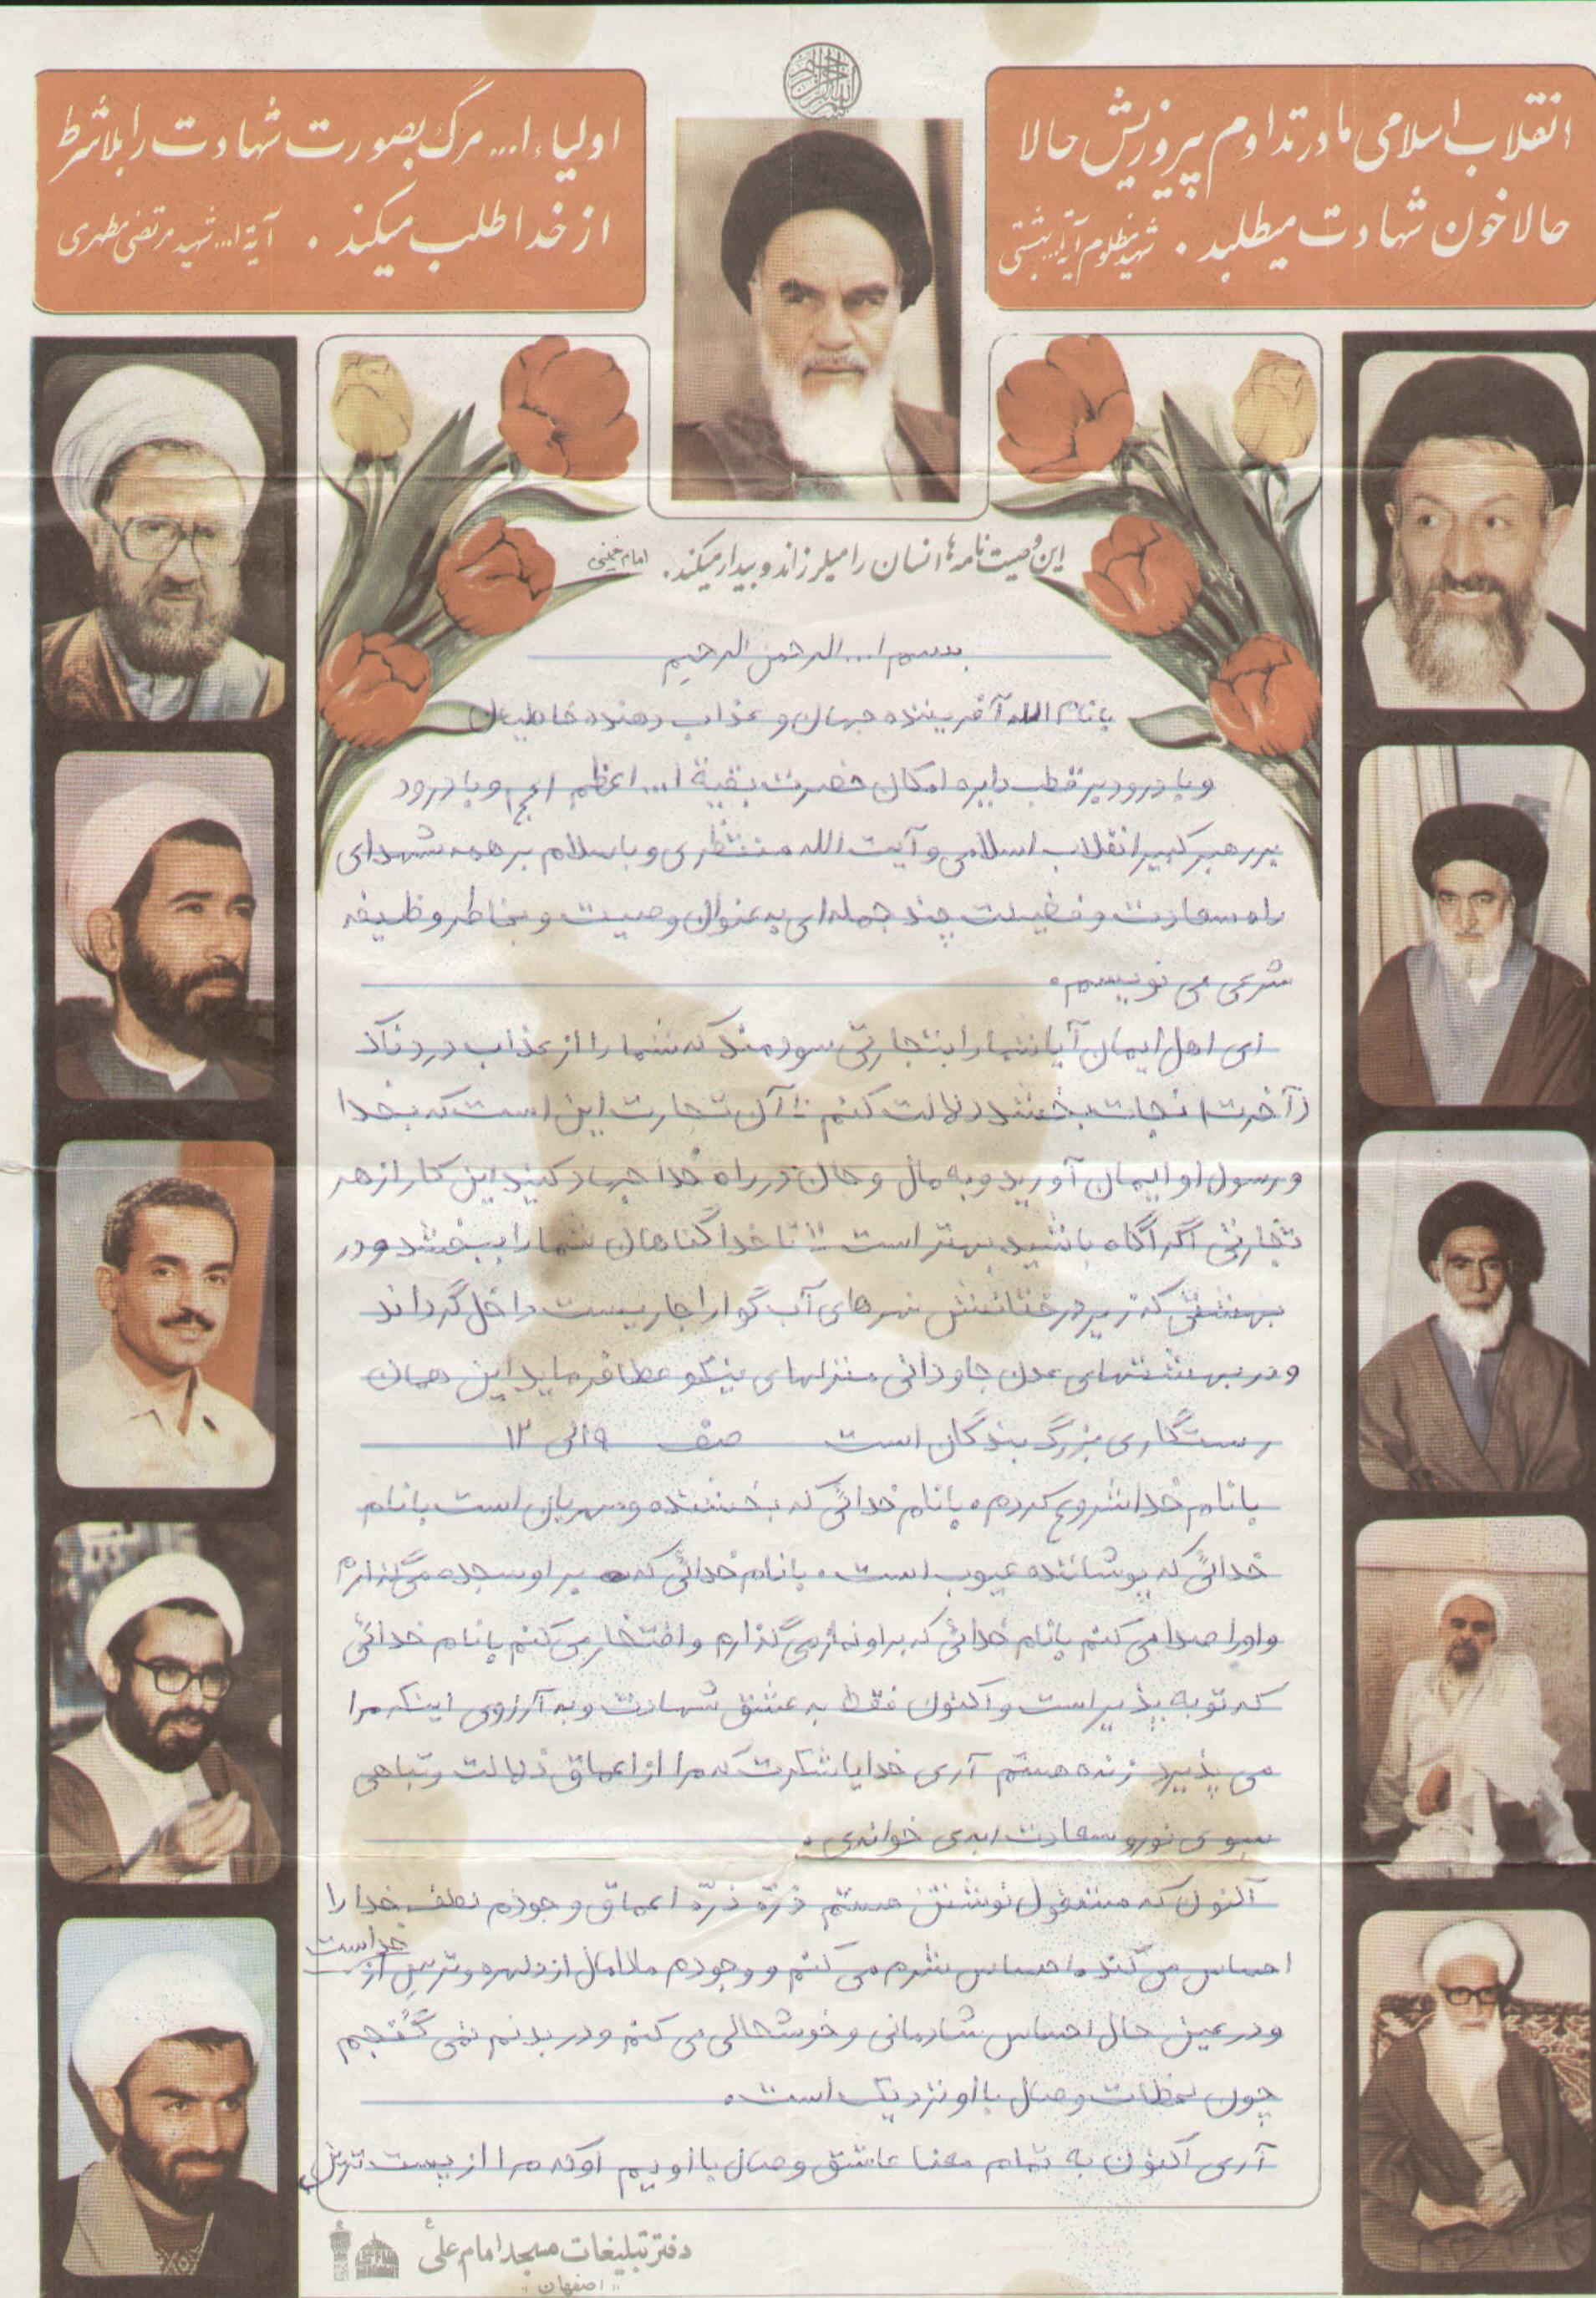 انقلاب اسلامی ما در تداوم پیروزیش حالا
حالا خون شهادت میطلبد . شهید مظلوم آیة ا... بهشتی
اولیاء ا... مرگ بصورت شهادت را بلاشرط
از خدا طلب میکند . آیة ا... شهید مرتضی مطهری
این وصیت نامه ها انسان را میلرزاند و بیدار میکند. امام خمینی
بسم ا... الرحمن الرحیم
بانام الله آفریننده جهان و عذاب دهنده خاطیان
و با درود بر قطب دایره امکان حضرت بقیة ا... اعظم (عج) و با درود
بر رهبر کبیر انقلاب اسلامی و آیت الله منتظری و با سلام بر همه شهدای
راه سعادت و فضیلت چند جمله ای به عنوان وصیت و بخاطر وظیفه
شرعی می نویسم.
ای اهل ایمان آیا شما را بتجارتی سودمند که شما را از عذاب دردناک
(آخرت) نجات بخشد دلالت کنم ۱۰ آن تجارت این است که بخدا
و رسول او ایمان آورید و به مال و جان در راه خدا جهاد کنید این کار از هر
تجارتی اگر آگاه باشید بهتر است ۱۱ تا خدا گناهان شما را ببخشد و در
بهشتی که زیر درختانش نهرهای آب گوارا جاریست داخل گرداند
و در بهشتهای عدن جاودانی منزلهای نیکو عطا فرماید این همان
رستگاری بزرگ بندگان است صف ۹ الی ۱۲
بانام خدا شروع کردم. بانام خدائی که بخشنده و مهربان است بانام
خدائی که پوشاننده عیوب است. بانام خدائی که بر او سجده می گذارم
و او را صدا می کنم بانام خدائی که بر او نماز می گذارم و افتخار می کنم بانام خدائی
که توبه پذیر است و اکنون فقط به عشق شهادت و به آرزوی اینکه مرا
می پذیرد زنده هستم آری خدایا شکرت که مرا از اعماق ذلالت و تباهی
سوی نور و سعادت ابدی خواندی.
اکنون که مشغول نوشتن هستم ذره ذره اعماق وجودم لطف خدا را
احساس می کند. احساس شرم می کنم و وجودم مالامال از دلهره و ترس از خداست
و در عین حال احساس شادمانی و خوشحالی می کنم و در بدنم نمی گنجم
چون لحظات وصال با او نزدیک است.
آری اکنون به تمام معنا عاشق وصال با اویم اوکه مرا از پست ترین
دفتر تبلیغات مسجد امام علی ع
"اصفهان"